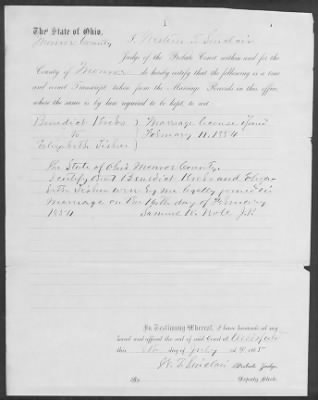 The State of Ohio,
Monroe County, I, W. T. Sinclair
Judge of the Probate Court within and for the
County of Monroe do hereby certify that the following is a true
and correct Transcript taken from the Marriage Records in this office
where the same is by law required to be kept, to wit:
Benedict Krebs } Marriage license issued
to } February 11, 1854
Elizabeth Fisher
The State of Ohio Monroe County.
I certify that Benedict Krebs and Eliza-
beth Fisher were by me legally joined in
Marriage on the day of February
1854 Samuel J.P.
In Testimony Whereof, I have hereunto set my
hand and affixed the seal of said Court at
this day of July
W. T. Sinclair Probate Judge.
By Deputy Clerk.